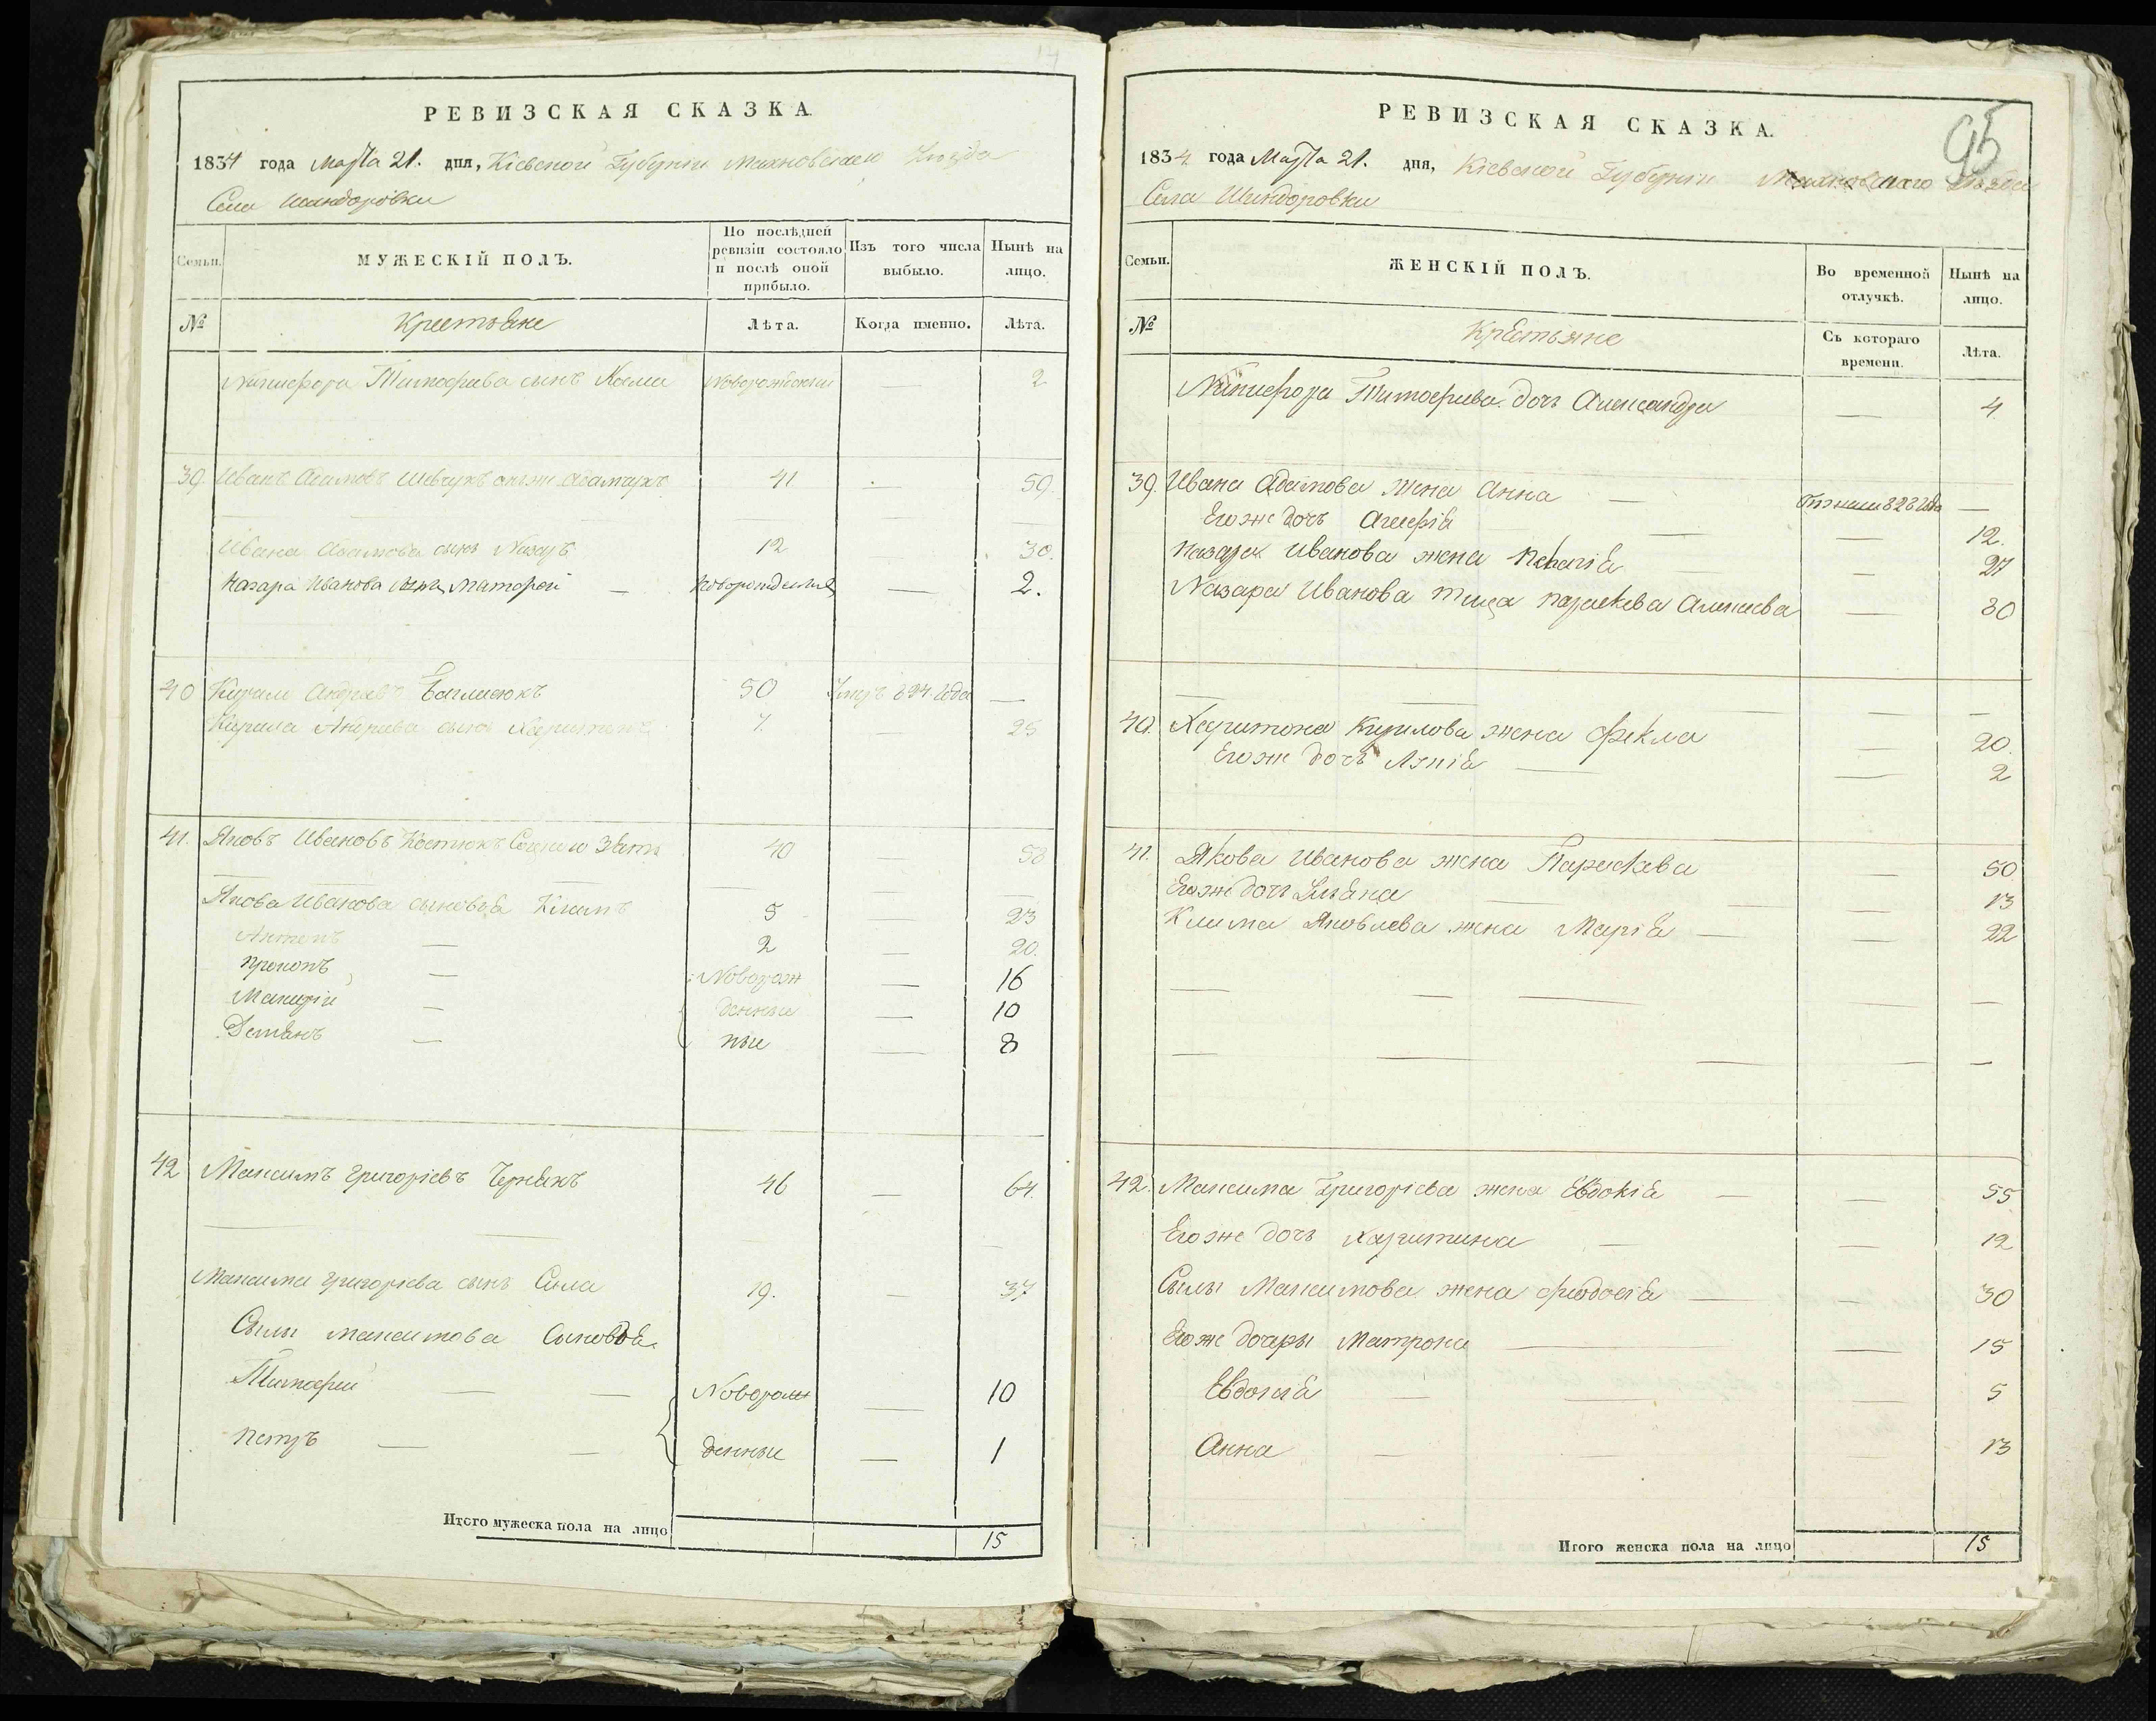 РЕВИЗСКАЯ СКАЗКА.
1834 года Марта 21. дня, Кіевской Губерніи Махновскаго Уезда
Села
МУЖЕСКІЙ ПОЛЪ.
Семьи.
По послѣдней ревизіи состояло и послѣ оной прибыло.
Изъ того числа выбыло.
Нынѣ на лицо.
№
Крестьяне
Лѣта.
Когда именно.
Лѣта.
Никифора Тимофѣева сынъ Новорожденный — 2
39. Иванъ Адамовъ Шевчукъ онъ же Адамчукъ 41 — 59.
Ивана Адамова сынъ Назаръ 12 — 30.
Назара Иванова сынъ Матофей — Новорожденный — 2.
40 Кирило Андреевъ 50 Умеръ 824 года —
Кирила Андреева сынъ Харитонъ 7. — 25
41. Яковъ Ивановъ Костюкъ зять 40 — 58
Якова Иванова сыновья Климъ 5 — 23
Антонъ — 2 — 20.
Прокопъ — Новорож — 16
Макарій — денные — 10
Демянъ — ные — 8
42 Максимъ Григоріевъ Чернякъ 46 — 64.
Максима Григоріева сынъ Сила 19. — 37
Силы Максимова Сыновья
Тимофей — — Новорож — 10
Петръ — — денные — 1
Итого мужеска пола на лицо 15
РЕВИЗСКАЯ СКАЗКА.
95
1834 года Марта 21. дня, Кіевской Губерніи Махновского Уезда
Села
Семьи.
ЖЕНСКІЙ ПОЛЪ.
Во временной отлучкѣ.
Нынѣ на лицо.
№
Крестьяне
Съ котораго времени.
Лѣта.
Никифора Тимофеева дочь Александра — 4.
39. Ивана Адамова жена Анна — 823 года —
Его же дочь Агафія — — 12.
Назара Иванова жена Пелагія — — 27
Назара Иванова теща Параскева Алексеева — 30
40. Харитона Кирилова жена Фекла — 20.
Его же дочь — — 2
41. Якова Иванова жена Параскева — 50
Его же дочь Ульяна — — 13
Клима Яковлева жена Марія — — 22
42. Максима Григоріева жена Евдокія — — 55
Его же дочь Харитина — — 12
Силы Максимова жена Феодосія — — 30
Его же дочеры Матрона — — 15
Евдокія — — — 5
Анна — — — 13
Итого женска пола на лицо 15